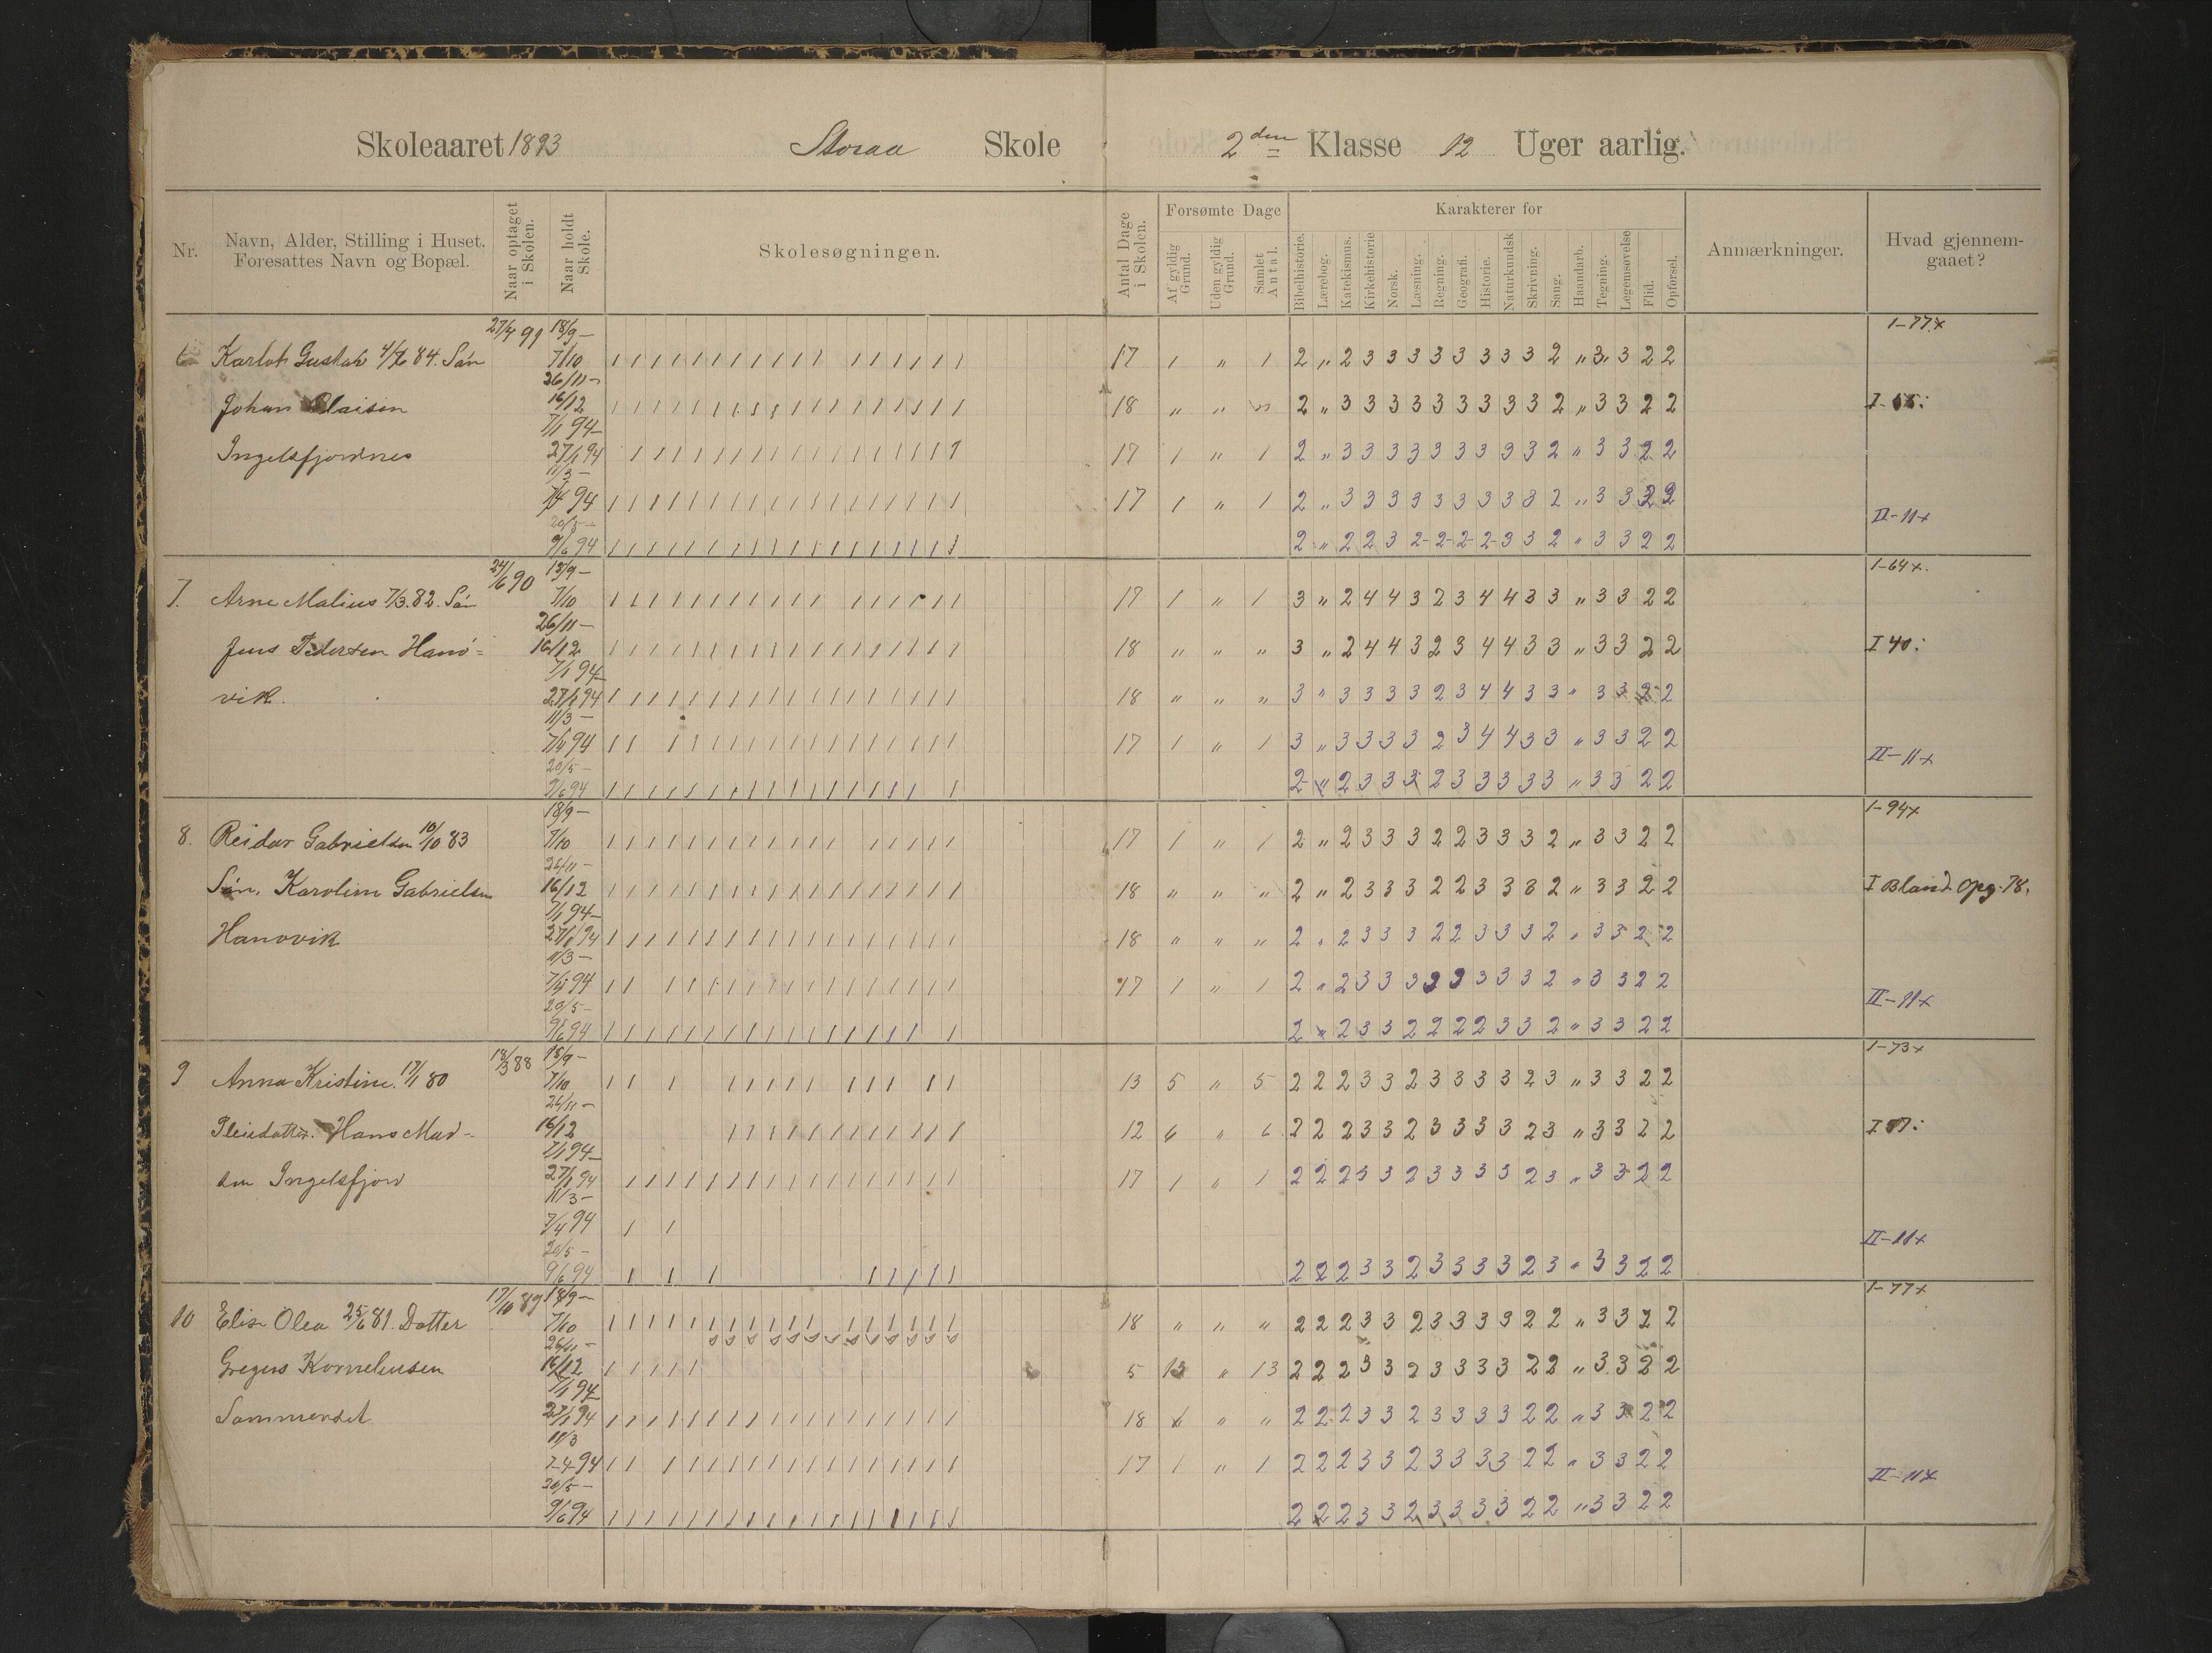 Skoleaaret 1893 Storaa Skole 2den Klasse 12 Uger aarlig.
Nr.
Navn, Alder, Stilling i Huset. Foresattes Navn og Bopæl.
Naar optaget i Skolen.
Naar holdt Skole.
Skolesøgningen.
Antal Dage i Skolen.
Forsømte Dage
Af gyldig Grund.
Uden gyldig Grund.
Samlet Antal.
Karakterer for
Bibelhistorie.
Lærebog.
Katekismus.
Kirkehistorie
Norsk.
Læsning.
Regning.
Geografi.
Historie.
Naturkundsk
Skrivning.
Sang.
Haandarb.
Tegning.
Legemsøvelse
Flid.
Opførsel.
Anmærkninger.
Hvad gjennemgaaet?
27/4 91 18/9 – 1-77x
6 Karlot Gustav 4/6 84. Søn 7/10 17 1 " 1 2 " 2 3 3 3 3 3 3 3 3 2 " 3 3 2 2
26/11 –
Johan 16/12 18 " " " 2 " 3 3 3 3 3 3 3 3 3 2 " 3 3 2 2
7/1 94 –
Ingelsfjordnes 27/1 94 17 1 " 1 2 " 3 3 3 3 3 3 3 3 3 2 " 3 3 2 2
11/3 –
7/4 94 17 1 " 1 2 " 3 3 3 3 3 3 3 3 3 2 " 3 3 2 2
20/5 – II-11x
9/6 94 2 " 2 2 3 2 2 2 2 3 3 2 " 3 3 2 2
24/6 90 18/9 – 1-64x.
7. Arne Malius 7/3. 82. Søn 7/10 17 1 " 1 3 " 2 4 4 3 2 3 4 4 3 3 " 3 3 2 2
26/11 –
Jens Pedersen Hanø- 16/12 18 " " " 3 " 2 4 4 3 2 3 4 4 3 3 " 3 3 2 2 I 40:
7/1 94 –
vik. 27/1 94 18 " " " 3 " 3 3 3 3 2 3 4 4 3 3 " 3 3 2 2
11/3 –
7/4 94 17 1 " 1 3 " 3 3 3 3 2 3 4 4 3 3 " 3 3 2 2
20/5 – II-11x
9/6 94 2 " 2 3 3 3 2 3 3 3 3 3 " 3 3 2 2
18/9 – 1-94x
8. Reidar Gabrielsen 10/10 83 7/10 17 1 " 1 2 " 2 3 3 3 2 2 3 3 3 2 " 3 3 2 2
26/11 –
Søn. Karoline Gabrielsen 16/12 18 " " " 2 " 2 3 3 3 2 2 3 3 3 2 " 3 3 2 2 I Bland. Opg. 78.
7/1 94 –
Hanøvik 27/1 94 18 " " " 2 " 2 3 3 3 2 2 3 3 3 2 " 3 3 2 2
11/3 –
7/4 94 17 1 " 1 2 " 2 3 3 3 2 2 3 3 3 2 " 3 3 2 2
20/5 – II-11x
9/6 94 2 " 2 3 3 2 2 2 2 3 3 2 " 3 3 2 2
18/3 88 18/9 – 1-73x
9 Anna Kristine. 17/1 80 7/10 13 5 " 5 2 2 2 3 3 2 3 3 3 3 2 3 " 3 3 2 2
26/11 –
Pleiedatter. Hans Mad- 16/12 12 6 " 6 2 2 2 3 3 2 3 3 3 3 2 3 " 3 3 2 2
7/1 94 –
sen Ingelsfjord 27/1 94 17 1 " 1 2 2 2 3 3 2 3 3 3 3 2 3 " 3 3 2 2
11/3 –
7/4 94
20/5 – II-11x
9/6 94 2 2 2 3 3 2 3 3 3 3 2 3 " 3 3 2 2
17/10 89 18/9 – 1-77x
10 Elise Olea 25/6 81. Datter 7/10 18 " " " 2 2 2 3 3 2 3 3 3 3 2 2 " 3 3 2 2
26/11 –
Gregus Korneliusen 16/12 5 13 " 13 2 2 2 3 3 2 3 3 3 3 2 2 " 3 3 2 2
7/1 94 –
Sommerset 27/1 94 18 " " 2 2 2 3 3 2 3 3 3 3 2 2 " 3 3 2 2
11/3
7-4-94 17 1 " 1 2 2 2 3 3 2 3 3 3 3 2 2 " 3 3 2 2
20/5 – II-11x
9/6 94 2 2 2 3 3 2 3 3 3 3 2 2 " 3 3 2 2